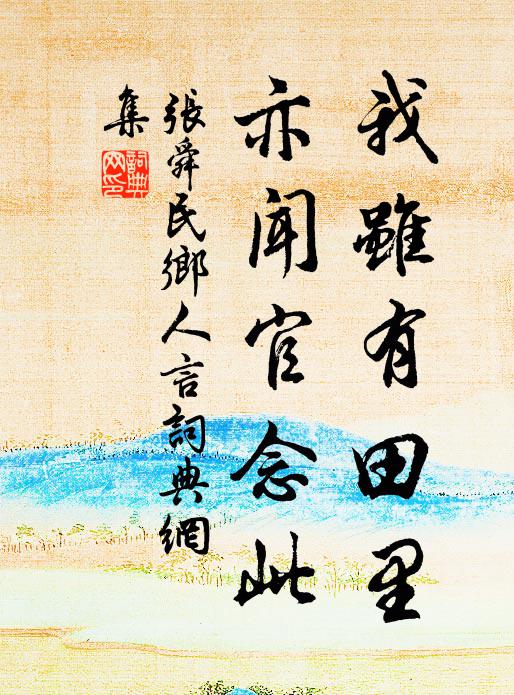 我雖有田里
亦聞官念此
張舜民鄉人言詞典網
集
詞典
网印